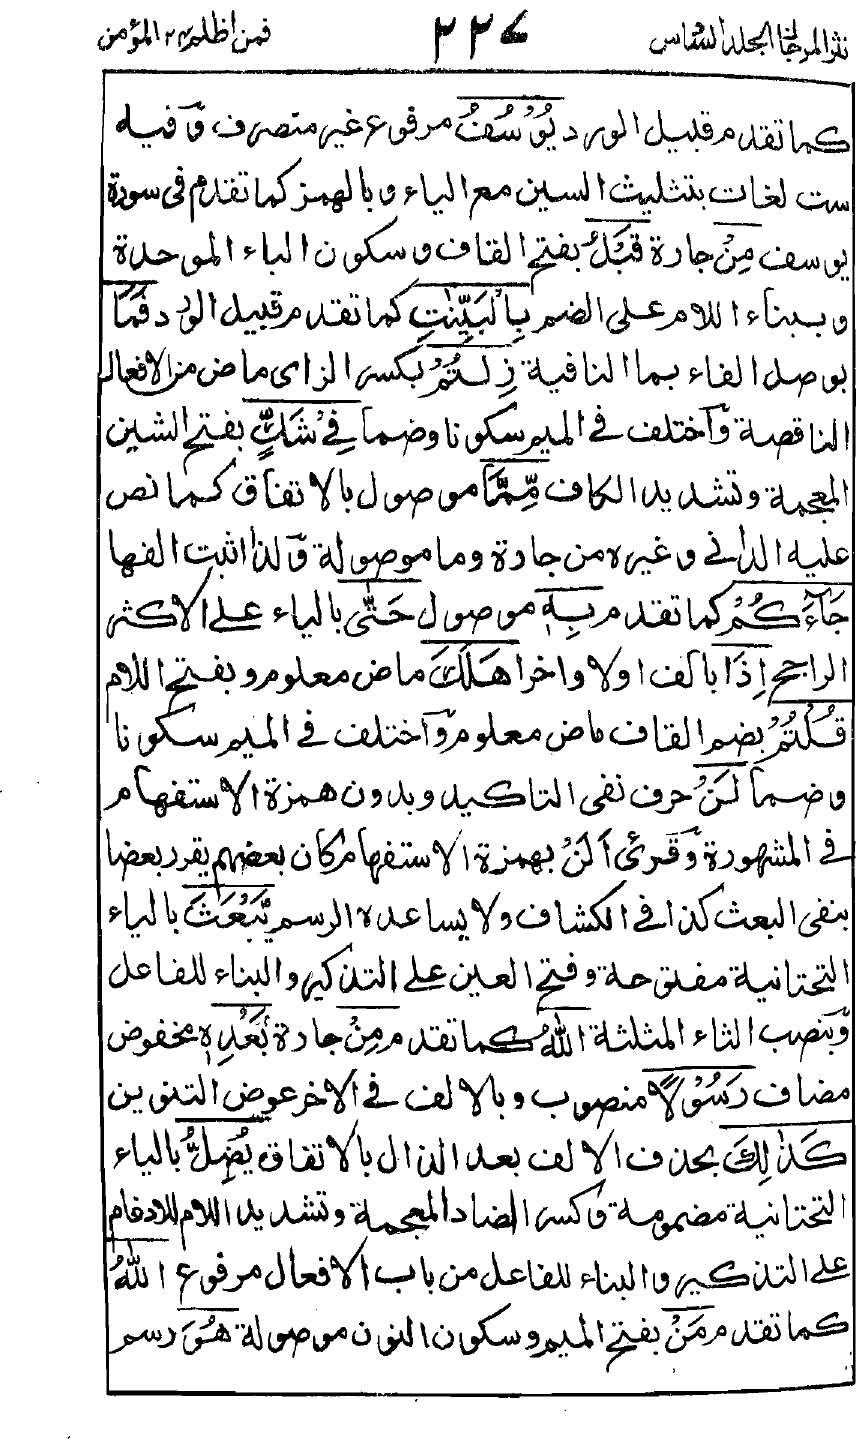 نثر المرجان المجلد السادس ٢٢٧ فمن اظلم ٢٤ المؤمن
كما تقدم قبيل الورد يُوْسُفُ مرفوع غير منصرف وفيه
ست لغات بتثليث السين مع الياء وبالهمز كما تقدم فى سورة
يوسف مِنْ جارة قَبْلُ بفتح القاف وسكون الباء الموحدة
وببناء اللام على الضم بِالْبَيِّنٰتِ كما تقدم قبيل الورد فَمَا
بوصل الفاء بما النافية زِلْتُمْ بكسر الزاى ماض من الافعال
الناقصة وآختلف فى الميم سكونا وضما فِيْ شَكٍّ بفتح الشين
المعجمة وتشديد الكاف مِّمَّا موصول بالاتفاق كما نص
عليه الدانى وغيره من جارة وما موصولة ولذا اثبت الفها
جَآءَكُمْ كما تقدم بِهٖ موصول حَتّٰى بالياء على الاكثر
الراجح اِذَا بالف اولا واخرا هَلَكَ ماض معلوم وبفتح اللام
قُلْتُمْ بضم القاف ماض معلوم وآختلف فى الميم سكونا
وضما لَنْ حرف نفى التاكيد وبدون همزة الاستفهام
فى المشهورة وقرئ اَلَنْ بهمزة الاستفهام كان بعضهم يقرر بعضا
بنفى البعث كذا فى الكشاف ولا يساعده الرسم يَّبْعَثَ بالياء
التحتانية مفتوحة وفتح العين على التذكير والبناء للفاعل
وبنصب الثاء المثلثة اللّٰهُ كما تقدم مِنْ جارة بَعْدِهٖ مخفوض
مضاف رَسُوْلًا منصوب وبالالف فى الاخر عوض التنوين
كَذٰلِكَ بحذف الالف بعد الذال بالاتفاق يُضِلُّ بالياء
التحتانية مضمومة وكسر الضاد المعجمة وتشديد اللام للادغام
على التذكير والبناء للفاعل من باب الافعال مرفوع اللّٰهُ
كما تقدم مَنْ بفتح الميم وسكون النون موصولة هُوَ رسم